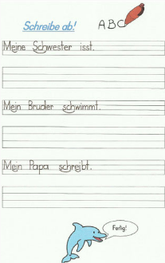 Schreibe ab!
ABC
Meine Schwester isst.
Mein Bruder schwimmt.
Mein Papa schreibt.
Fertig!